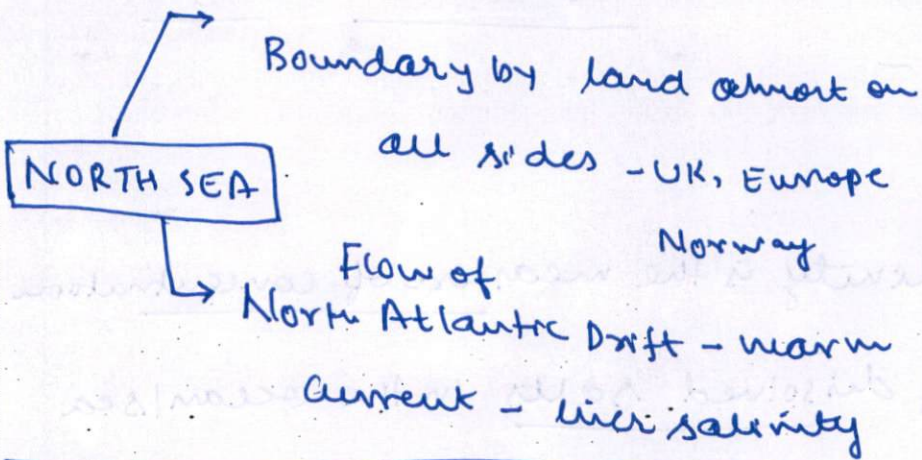 Boundary by land almost on
all sides - UK, Europe
Norway
NORTH SEA
Flow of
North Atlantic Drift - warm
current - incr salinity